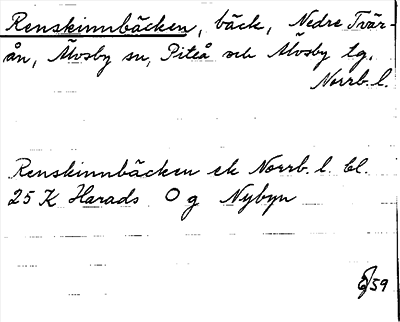 Renskinnbäcken, bäck, Nedre Tvär-
ån, Älvsby sn, Piteå och Älvsby tg,
Norrb. l.
Renskinnbäcken ek Norrb. l. bl.
25 K Harads O g Nybyn
/59